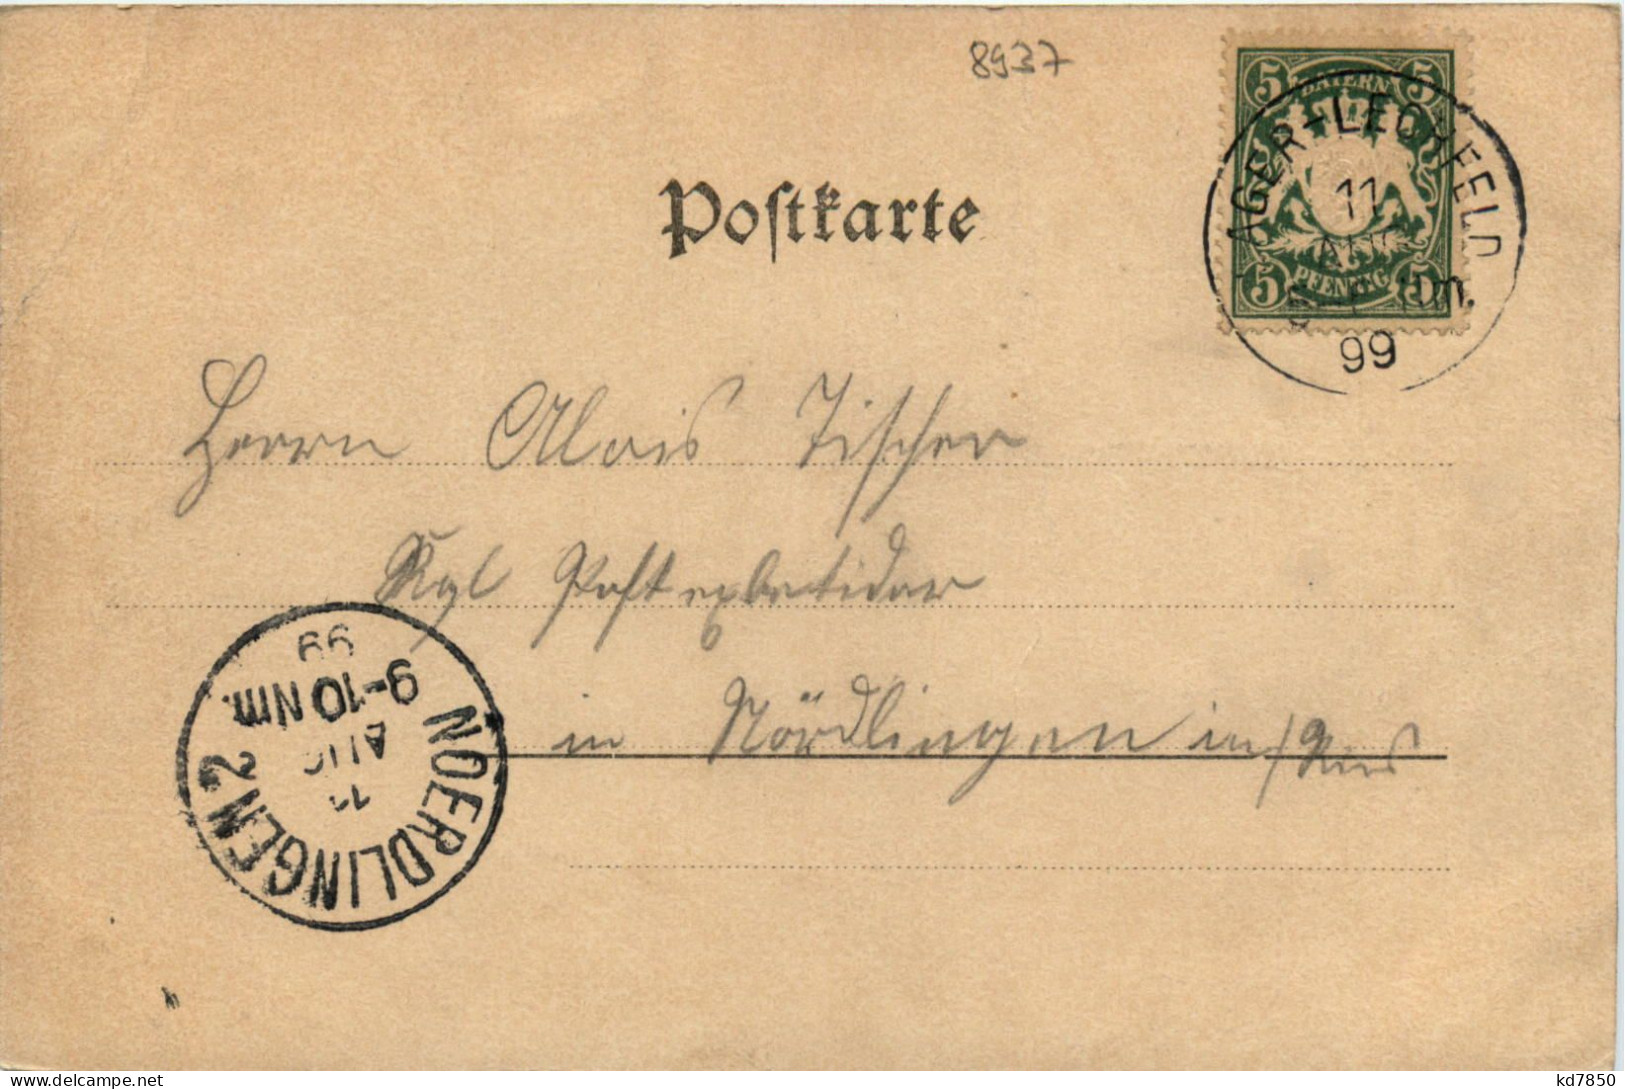 8937
5 BAYERN 5
5 PFENNIG 5
LAGER-LECHFELD
11
AUG
Nm.
99
Postkarte
Herrn Alois Tischer
Kgl Postexpeditor
in Nördlingen in/Ries
NOERDLINGEN 2
11
AUG
9-10 Nm.
99
kd7850